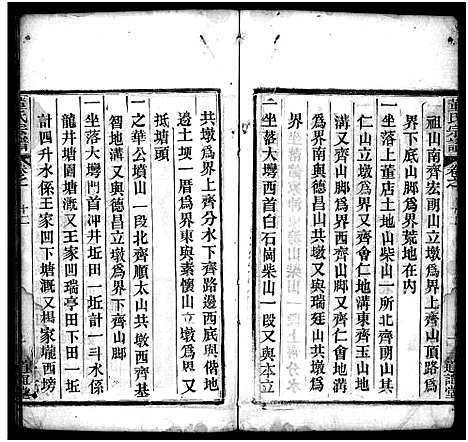 祖山南齊宏朗山立墩爲界上齊山頂路爲
界下底山脚爲界荒地在內
一坐落上董店土地山柴山一所北齊立墩
仁山立墩爲界又齊會仁地溝東齊玉山地
溝又齊山脚爲界西齊山溝又齊仁會地溝
爲界南與德昌山共墩又與瑞廷山共墩爲
界
一坐落大塆西首白石崗柴山一段又與本立
共墩爲界上齊分水下齊路邊西底與偕地
邊土埧一厝爲界東與素懷山立墩爲界南
抵塘頭
一之華公墳山一段北齊順太山共墩西齊基
智地溝又與德昌立墩爲界下齊山脚
一坐落大塆門首冲井坵田一坵計一斗水係
龍井塘圍塘溉又王家凹瑞亭田下田一坵
計四升水係王家凹下塘溉又楊家壠西塆